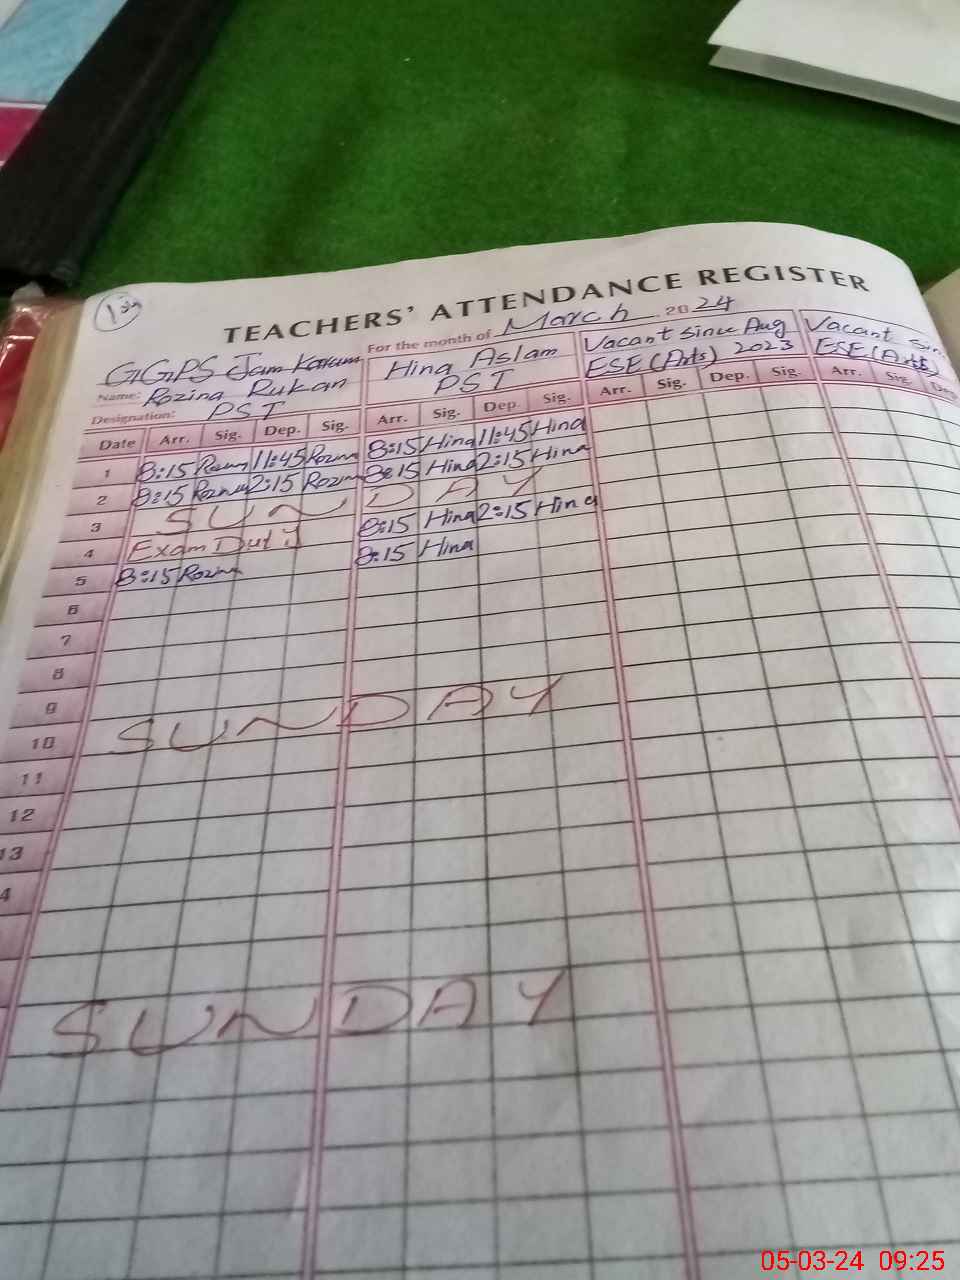 TEACHERS' ATTENDANCE REGISTER
For the month of March 2024
GGPS Jam
Name: Rozina Rukan
Designation: PST
Hina Aslam
PST
Vacant Since Aug
ESE (Arts) 2023
Vacant Sin
ESE (Arts)
Date Arr. Sig. Dep. Sig. Arr. Sig. Dep. Sig. Arr. Sig. Dep. Sig. Arr. Sig. Dep
1 8:15 11:45 Rozina 8:15 Hina 11:45 Hina
2 8:15 Rozina 2:15 Rozina 8:15 Hina 2:15 Hina
3 SUNDAY
4 Exam Duty 8:15 Hina 2:15 Hina
5 8:15 Rozina 8:15 Hina
6
7
8
9
10 SUNDAY
11
12
13
4
SUNDAY
05-03-24 09:25